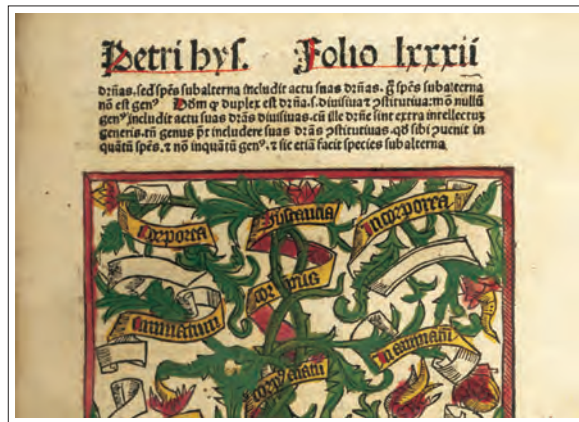 Petri hys. Folio lxxxii
drñas. sed spēs subalterna includit actu suas drñas. g̃ spēs subalterna
nō est genꝰ Dōm ꝙ duplex est drña. s. diuisiua ⁊ ꝯstitutiua: mō nullū
genꝰ includit actu suas drās diuisiuas. cū ille drñe sint extra intellectuꝫ
generis. tñ genus pt̄ includere suas drās ꝯstitutiuas. qd̄ sibi ꝯuenit in
quātū spēs. ⁊ nō inquātū genꝰ. ⁊ sic etiā facit species subalterna.
Corporea Substantia Incorporea
cor pus
Animatum Inanimatū